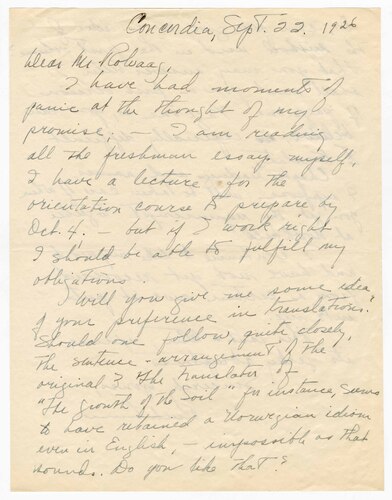 Concordia, Sept. 22. 1926
Dear Mr Rolvaag,
I have had moments of
panic at the thought of my
promise, — I am reading
all the freshman essays myself,
I have a lecture for the
orientation course to prepare by
Oct. 4. — but if I work right
I should be able to fulfill my
obligations.
Will you give me some idea
of your preference in translations.
Should one follow, quite closely,
the sentence-arrangement of the
original? The translator of
"The Growth of the Soil" for instance, seems
to have retained a Norwegian idiom
even in English, — impossible as that
sounds. Do you like that?